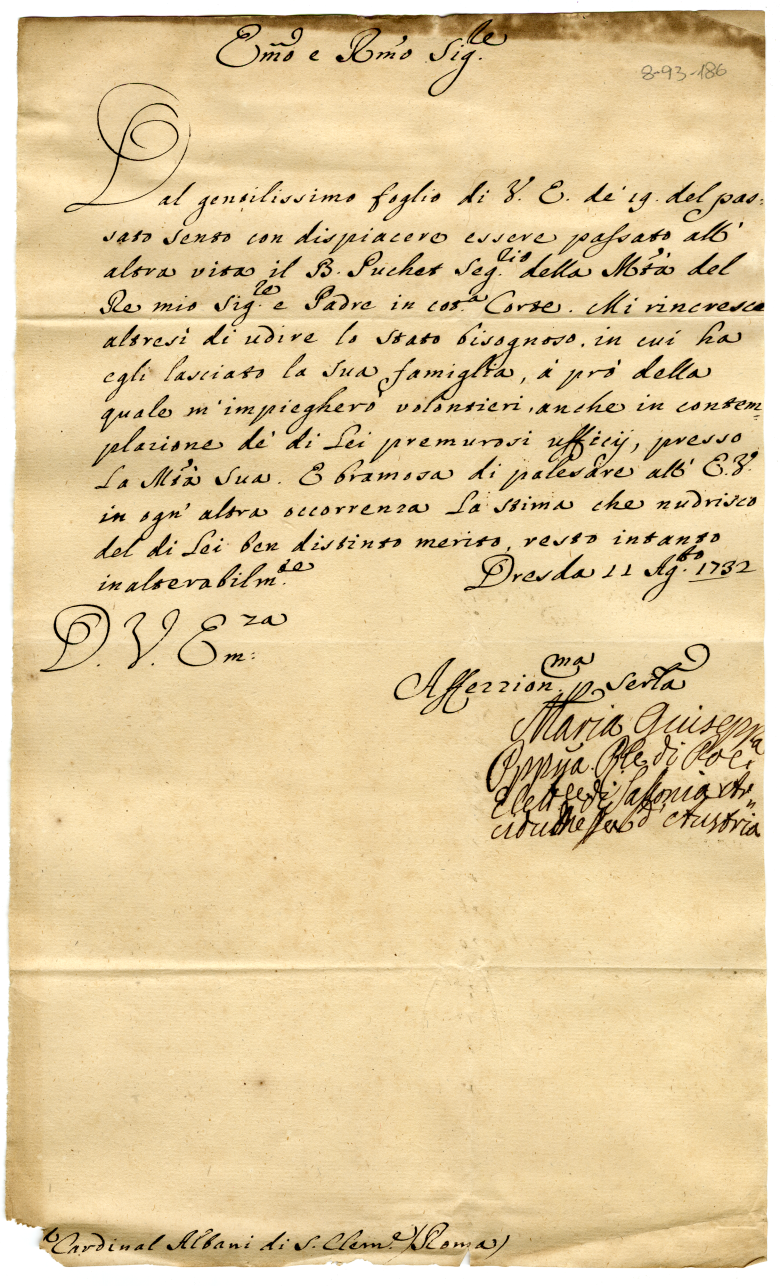 Em̃o e Rm̃o Sig.re
8-93-186
Dal gentilissimo foglio di V. E. de' 19. del pas-
sato sento con dispiacere essere passato all'
altra vita il B. Puchet Seg.rio della Mtà del
Re mio Sig.re e Padre in cot.a Corte. Mi rincresce
altresì di udire lo stato bisognoso, in cui ha
egli lasciato la sua famiglia, à prò della
quale m'impiegherò volontieri, anche in contem-
plazione de' di Lei premurosi ufficij, presso
La Mtà Sua. E bramosa di palesare all' E. V.
in ogn' altra occorrenza La stima che nudrisco
del di Lei ben distinto merito, resto intanto
inalterabilm.te Dresda 11 Ag.to 1732
D. V. Em.za
Affezzion.ma
Maria Giusepp.a
di Pol
di Sassonia Ar
ciduchessa d'Austria
Cardinal Albani di S. Clem.e (Roma)